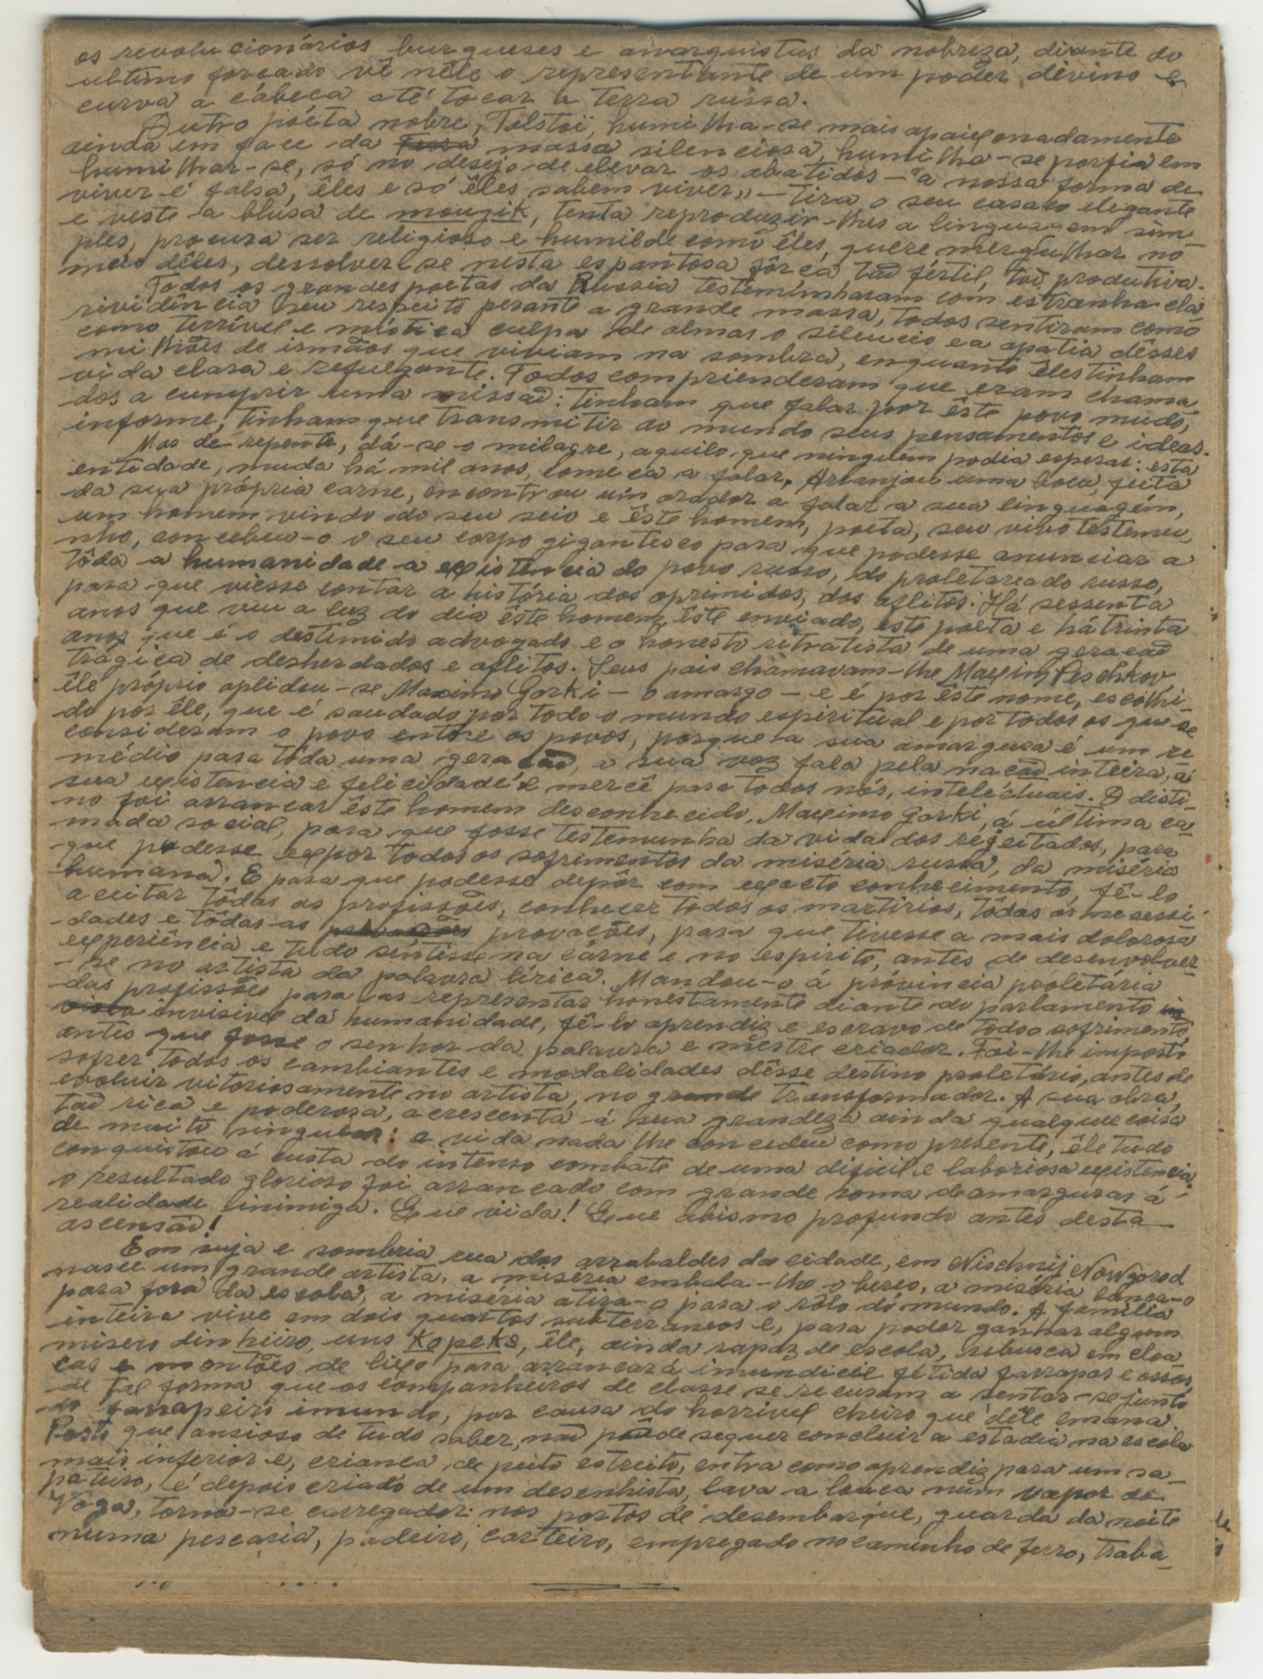 os revolucionários burgueses e anarquistas da nobreza, diante do
ultimo forçado vê nêle o representante de um poder divino e
curva a cabeça até tocar a terra russa.
Outro poéta nobre, Tolstoï, humilha-se mais apaixonadamente
ainda em face da massa silenciosa, humilha-se porfia em
humilhar-se, só no desejo de elevar os abatidos — "a nossa forma de
viver é falsa, êles e só êles sabem viver,, — tira o seu casaco elegante
e veste a blusa de moujik, tenta reproduzir-lhes a linguagem sim-
ples, procura ser religioso e humilde como êles, quere mergulhar no
meio dêles, dessolver-se nesta espantosa fôrça tão fértil, tão produtiva.
Todos os grandes poetas da Russia testeminharam com estranha cla-
rividência seu respeito perante a grande massa, todos sentiram como
como terrível e mística culpa de almas o silencio e a apatia dêsses
milhões de irmãos que viviam na sombra, enquanto êles tinham
vida clara e refulgente. Todos comprienderam que eram chama-
dos a cumprir uma missão: tinham que falar por êste povo mudo,
informe, tinham que transmitir ao mundo seus pensamentos e ideas.
Mas de repente, dá-se o milagre, aquilo que ninguém podia esperar: esta
entidade, muda há mil anos, começa a falar. Arranjou uma boca, feita
da sua própria carne, encontrou um orador a falar a sua linguagém,
um homem vindo do seu seio e êste homem, poeta, seu vivo testemu-
nho, concebeu-o o seu corpo gigantesco para que podesse anunciar a
tôda a humanidade a existencia do povo russo, do proletareado russo,
para que viesse contar a história dos oprimidos, dos aflitos. Há sessenta
anos que viu a luz do dia êste homem, êste enviado, este poeta e há trinta
anos que é o destimido advogado e o honesto retratista de uma geração
trágica de desherdados e aflitos. Seus pais chamavam-lhe Maxim Peschkov
êle próprio aplidou-se Maximo Gorki — o amargo — e é por êste nome, escolhi-
do por êle, que é saudado por todo o mundo espiritual e por todos os que se
consideram o povo entre os povos, porque a sua amargura é um re-
médio para tôda uma geração, a sua voz fala pela nação inteira, a
sua existencia e felicidade e mercê para todos nós, inteléctuais. O disti-
no foi arrancar êste homem desconhecido, Maximo Gorki, á ultima ca-
mada social, para que fosse testemunha da vida dos rejeitados, para
que podesse expor todos os sofrimentos da miséria russa, da miséria
humana. E para que podesse depôr com exacto conhecimento, fê-lo
aceitar tôdas as profissões, conhecer todos os martirios, tôdas as nesessi-
dades e tôdas as provações, para que tivesse a mais dolorosa
experiência e tudo sentisse na carne e no espirito, antes de desenvolver-
-se no artista da palavra lírica. Mandou-o á provincia proletária
das profissões para as representar honestamente diante do parlamento in
invisivel da humanidade, fê-lo aprendiz e escravo de todo o sofrimento
antes que fosse o senhor da palavra e mestre criador. Foi-lhe imposto
sofrer todos os cambiantes e modalidades dêsse destino proletário, antes de
evoluir vitoriosamente no artista, no grande transformador. A sua obra,
tão rica e poderosa, acrescenta á sua grandeza ainda qualquer coisa
de muito singular: a vida nada lhe concedeu como presente, êle tudo
conquistou á custa do intenso combate de uma dificil e laboriosa existencia,
o resultado glorioso foi arrancado com grande soma de amarguras á
realidade inimiga. Que vida! Que abismo profundo antes desta
ascensão!
Em suja e sombria rua dos arrabaldes da cidade, em Nischnij Nowgorod
nasce um grande artista, a miséria embala-lhe o berço, a miséria lança-o
para fora da escola, a miséria atira-o para o rôlo do mundo. A familia
inteira vive em dois quartos subterraneos e, para poder ganhar algum
misero dinheiro, uns Kopeks, êle, ainda rapaz de escola, rebusca em cloa-
cas e montões de lixo para arrancar á imundicie fétida farrapos e ossos
de tal forma que os companheiros de classe se recusam a sentar-se junto
do farrapeiro imundo, por causa do horrivel cheiro que dêle emana.
Posto que ansioso de tudo saber, não pôde sequer concluir a estadia na escola
mais inferior e, crianca, de peito estreito, entra como aprendiz para um sa-
pateiro, é depois criado de um desenhista, lava a louca num vapor do
Voga, torna-se carregador nos portos de desembarque, guarda da noite
numa pescaria, padeiro, carteiro, empregado no caminho de ferro, traba-